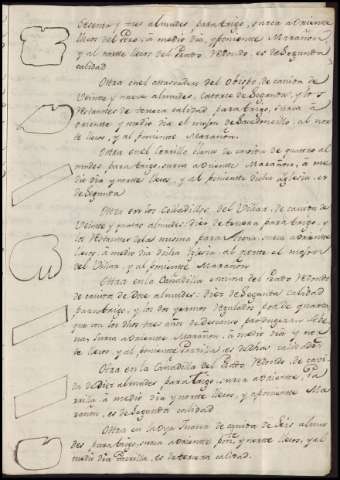 Oeceno y tres almudes para trigo, surca a Oriente
liecos del Pres, a medio dia, y poniente Marañon,
y al norte liecos del Prado Redondo, es de Segunda
calidad
Otra en el atrasadero del Obispo, de cavida de
Veinte y nueve almudes, Catorce de Segunda, y los
restantes de tercera calidad para trigo, surca a
oriente y medio dia el mojon de al nor
te liecos, y al poniente Marañon.
Otra en el Corrillo llano de cavida de quatro al
mudes para trigo, surca a Oriente Marañon, a me
dio dia y norte liecos, y al poniente dicha Iglesia, es
de Segunda
Otra en los Cañadillos, del Villar, de cavida de
Veinte y quatro almudes, diez de tercera para trigo, y
los restantes de la misma para surca a oriente
liecos, a medio dia dicha Iglesia al norte el mojon
del Villar, y al poniente Marañon
Otra en la Cañadilla encima del Prado Redondo
de cavida de doce almudes, diez de Segunda calidad
para trigo, y los dos yermos regulados por de quarta
que con los dos tres años de descanso, produzcan
surca a oriente Marañon, a medio dia y nor
te liecos, y al poniente Parrilla, es de dha calidad
Otra en la Cañadilla del Prado Redondo, de cavi
da de diez almudes para trigo, surca a oriente, Pa
rrilla, a medio dia y norte liecos, y a poniente Ma
rañon, es de Segunda calidad
Otra en la Oya Juana de cavida de Seis almu
des para trigo, surca a Oriente y norte liecos, y al
medio dia Parrilla, es de tercera calidad.